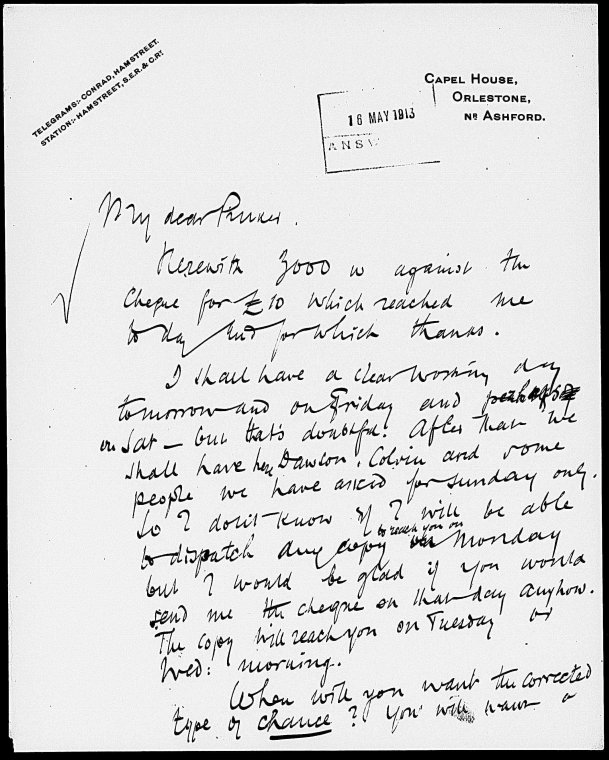 TELEGRAMS:- CONRAD, HAMSTREET.
STATION:- HAMSTREET, S.E.R. & C.RY.
CAPEL HOUSE,
ORLESTONE,
NR ASHFORD.
16 MAY 1913
ANSW
My dear Pinker.
Herewith 3000 w against the
cheque for £10 which reached me
to day and for which thanks.
I shall have a clear working day
tomorrow and on Friday and perhaps
on Sat – but that's doubtful. After that we
shall have here Dawson, Colvin and some
people we have asked for Sunday only.
So I don't know if I will be able
to dispatch any copy to reach you on Monday
but I would be glad if you would
send me the cheque on that day anyhow.
The copy will reach you on Tuesday or
Wed: morning.
When will you want the corrected
type of Chance? You will want a